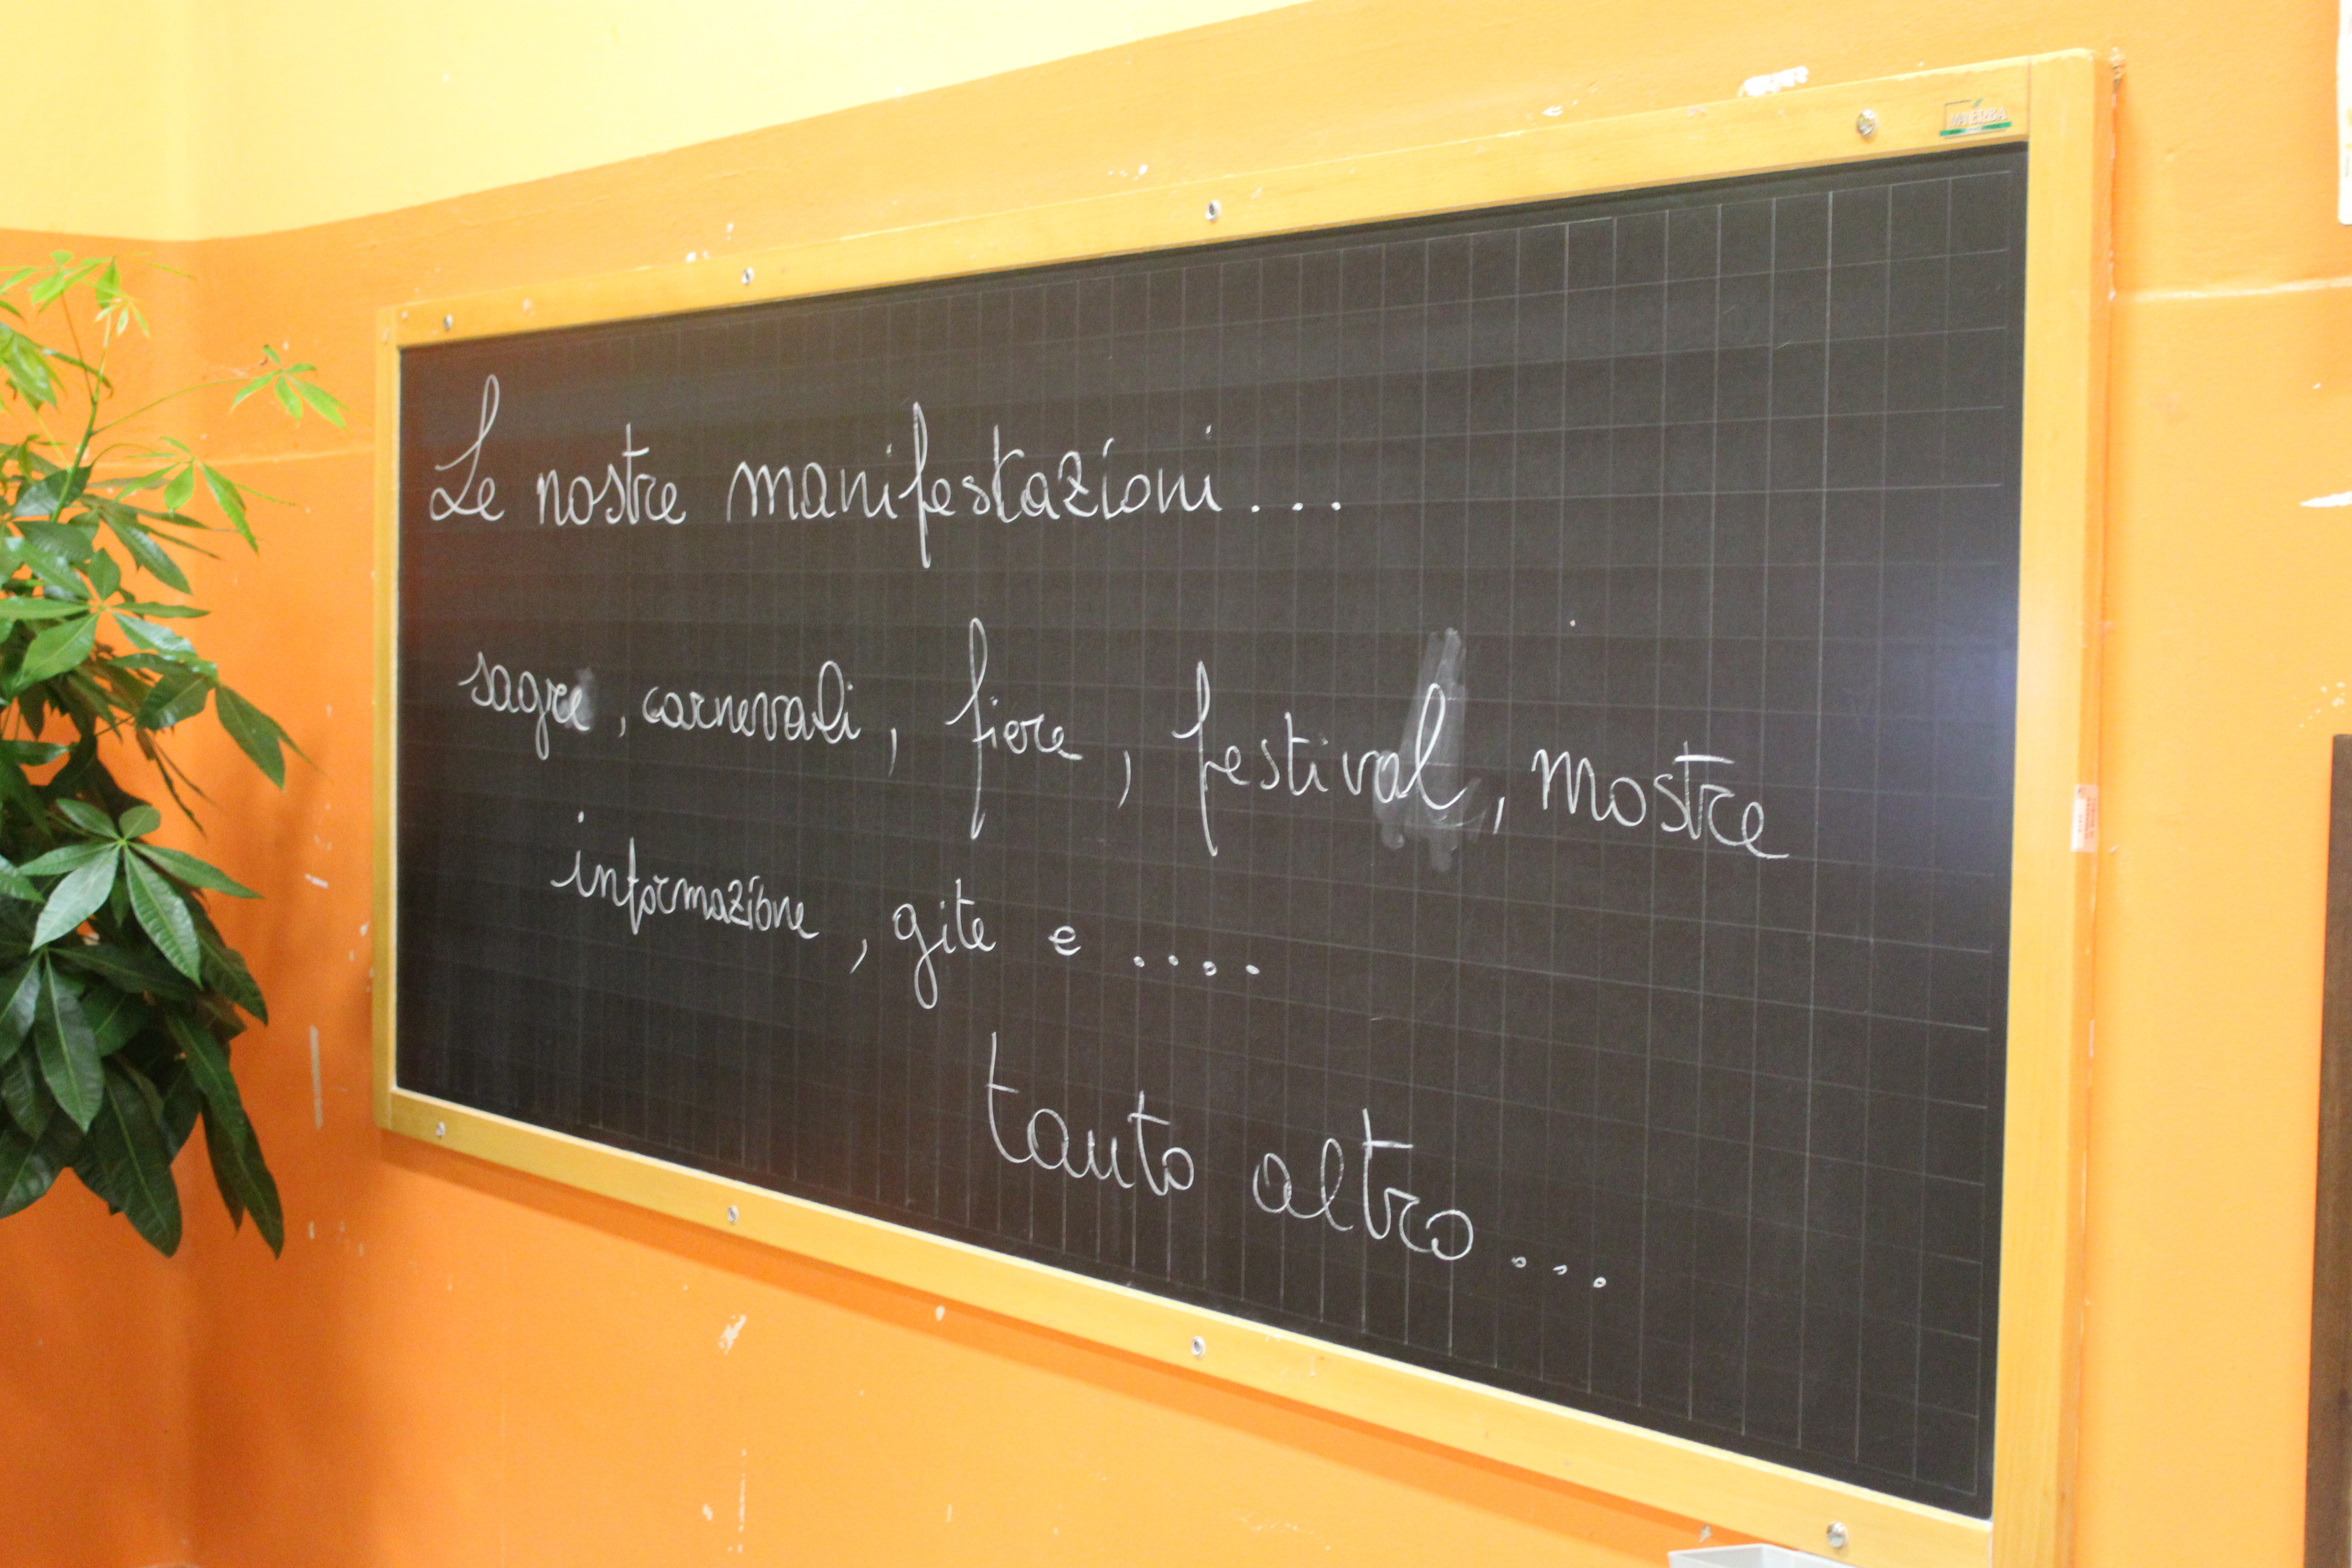 Le nostre manifestazioni...
sagre, carnevali, fiere, festival, mostre
informazione, gite e ....
tanto altro...